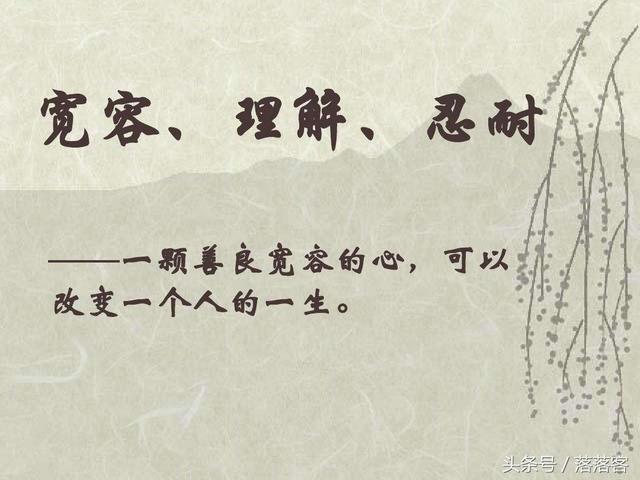 宽容、理解、忍耐
——一颗善良宽容的心，可以
改变一个人的一生。
头条号 / 落落客